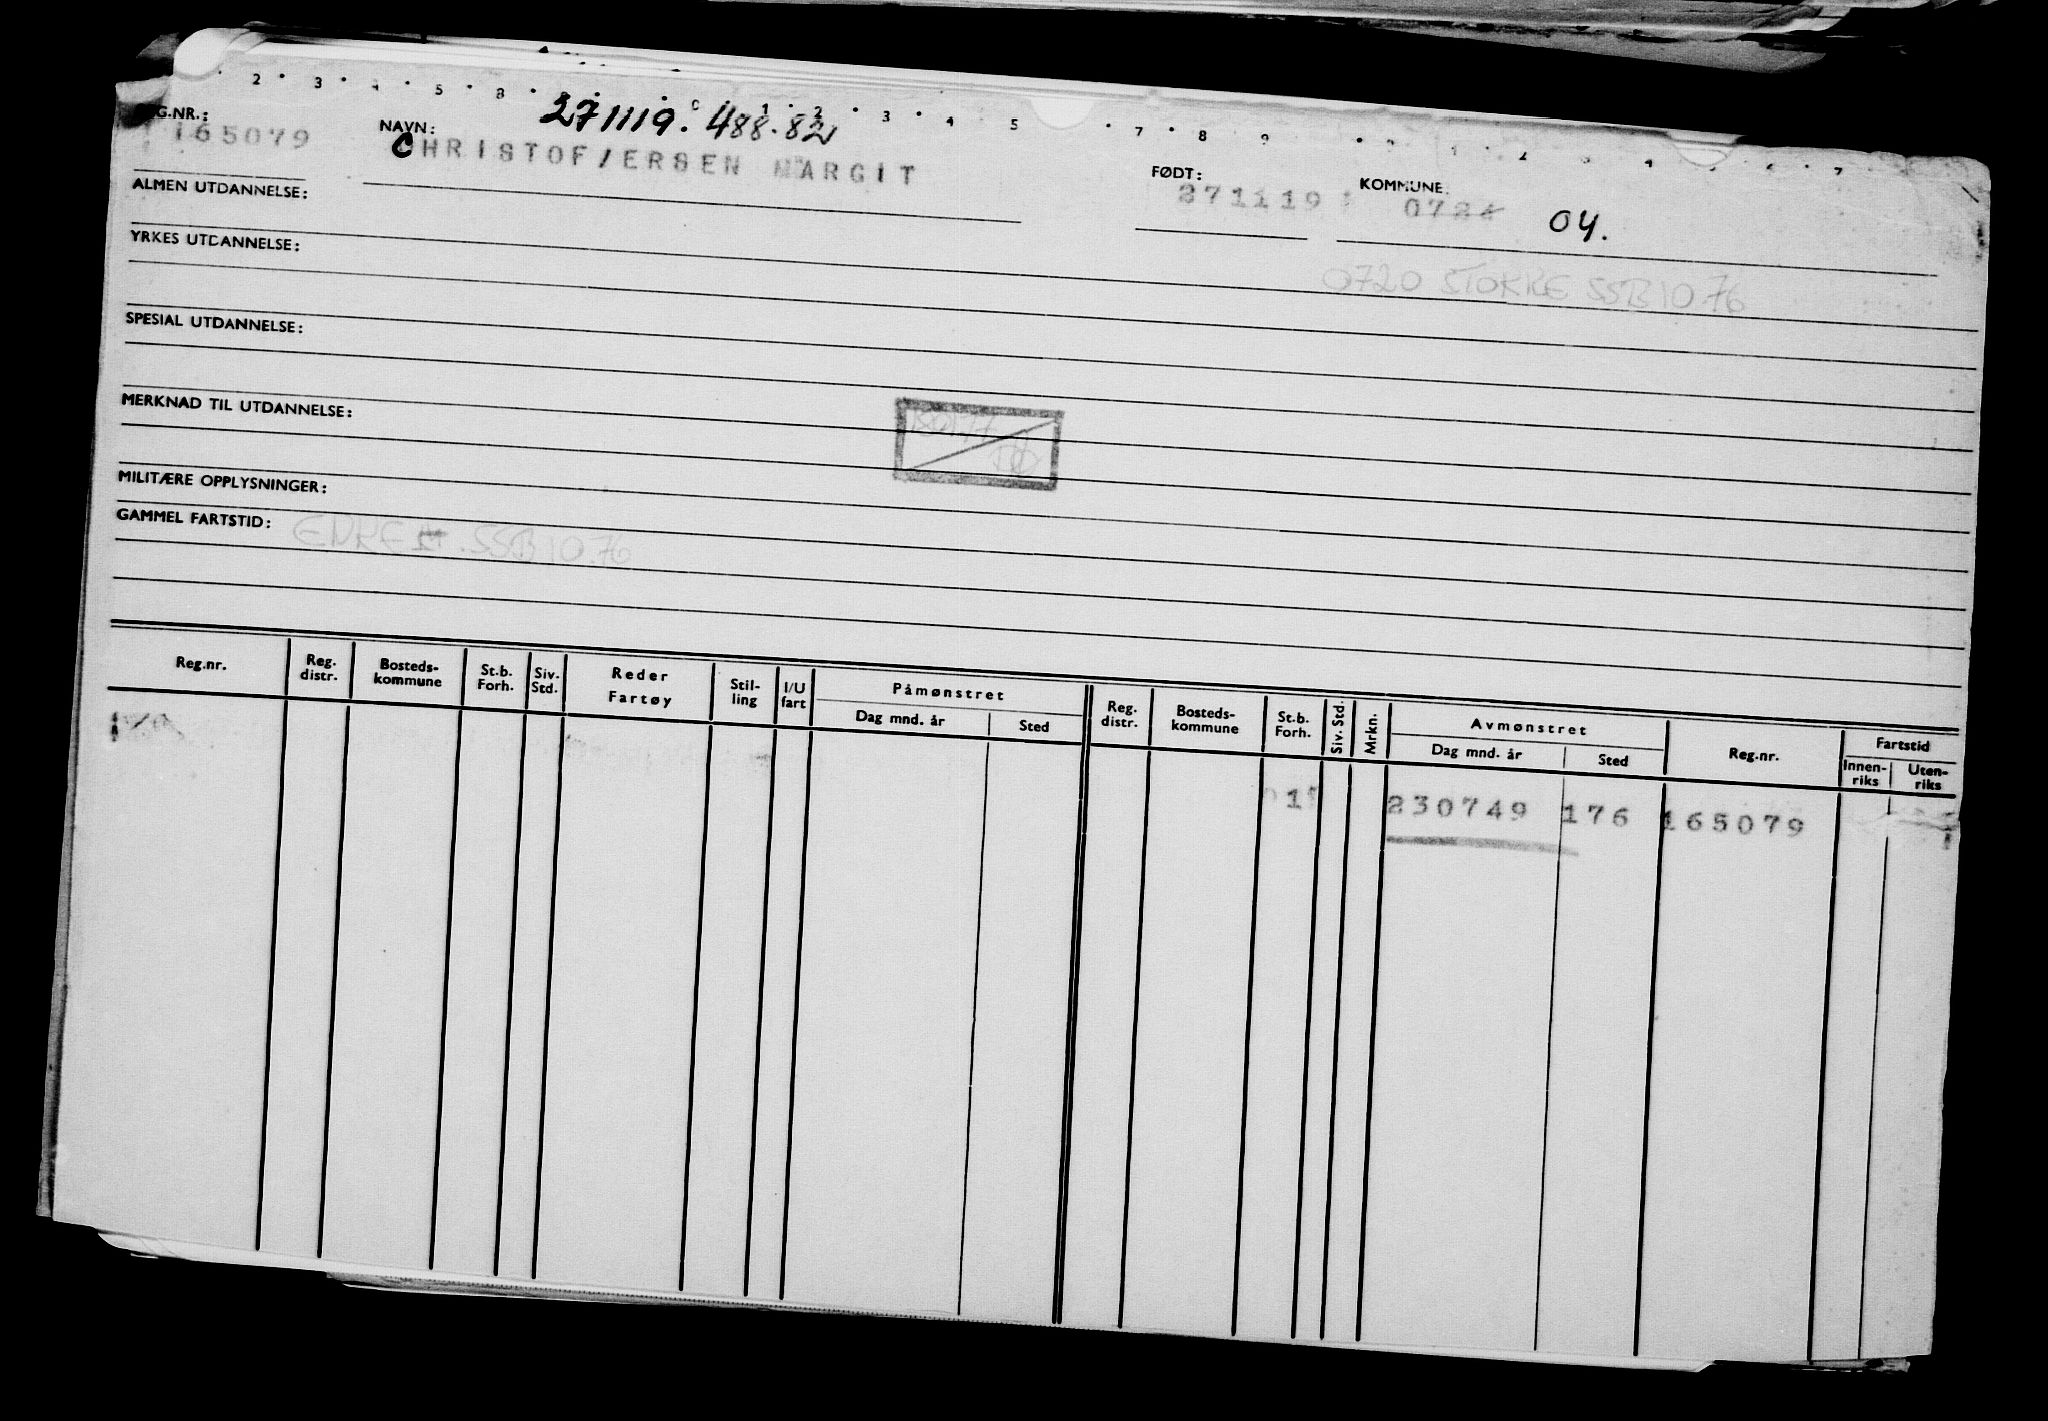 271119. 488.82
REG.NR.: NAVN: FØDT: KOMMUNE:
165079 CHRISTOF/ERSEN MARGIT 271119 0724 04.
ALMEN UTDANNELSE:
YRKES UTDANNELSE:
0720 STOKKE SSB 10.76
SPESIAL UTDANNELSE:
MERKNAD TIL UTDANNELSE:
MILITÆRE OPPLYSNINGER:
GAMMEL FARTSTID: ENKE SSB 10.76
Reg.nr. Reg. distr. Bosteds-kommune St.b. Forh. Siv. Std. Reder Fartøy Stil-ling I/U fart Påmønstret Dag mnd. år Sted Reg. distr. Bosteds-kommune St.b. Forh. Siv. Std. Mrkn. Avmønstret Dag mnd. år Sted Reg.nr. Fartstid Innen-riks Uten-riks
230749 176 165079